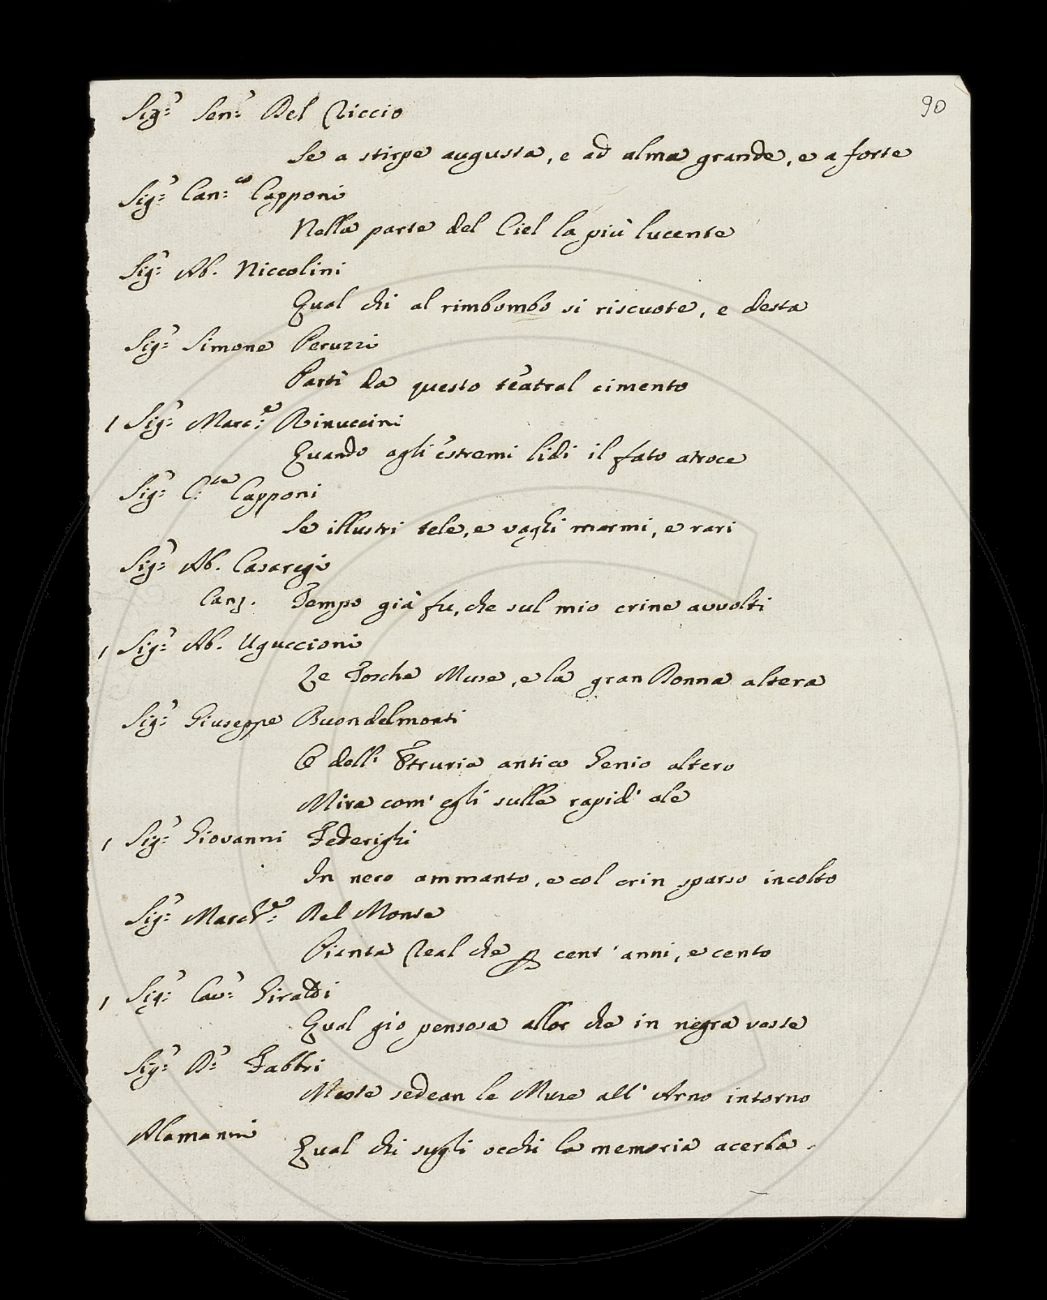 90
Sig:r Sen:r Del Riccio
Se a stirpe augusta, e ad alma grande, e a forte
Sig:r Can:co Capponi
Nella parte del Ciel la più lucente
Sig:r Ab. Niccolini
Qual chi al rimbombo si riscuote, e desta
Sig:r Simone Peruzzi
Parti da questo teatral cimento
Sig:r Marc:e Rinuccini
Quando agli estremi lidi il fato atroce
Sig:r C:te Capponi
Se illustri tele, e vaghi marmi, e rari
Sig:r Ab. Casaregi
Canz. Tempo già fu, che sul mio crine avvolti
Sig:r Ab. Uguccioni
Le Tosche Muse, e la gran Donna altera
Sig:r Giuseppe Buondelmonti
O dell' Etruria antico Genio altero
Mira com' egli sulle rapid' ale
Sig:r Giovanni Federighi
In nero ammanto, e col crin sparso incolto
Sig:r March:e Del Monte
Pianta Real che p cent' anni, e cento
Sig:r Cav:r Giraldi
Qual gio pensosa allor che in negra veste
Sig:r D:r Fabbri
Meste sedean le Muse all' Arno intorno
Alamanni
Qual chi sugli occhi la memoria acerba.